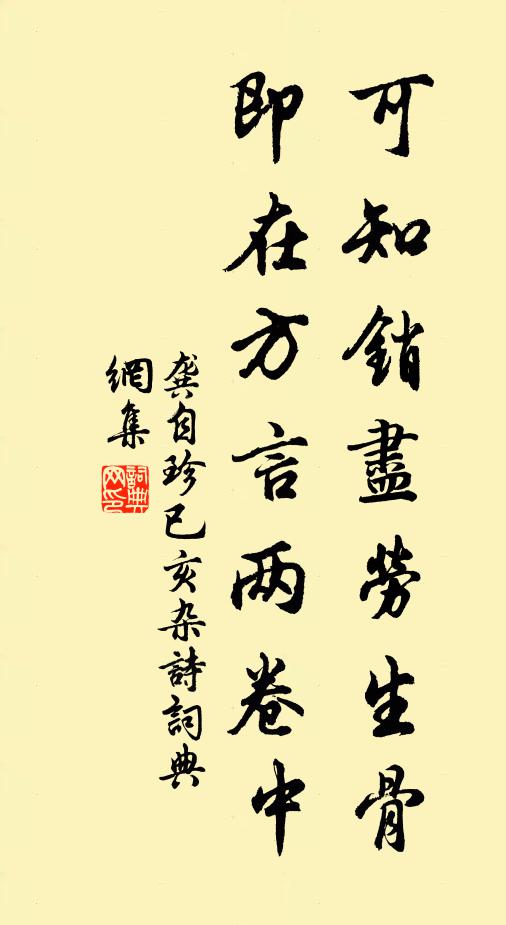 可知銷盡勞生骨
即在方言两卷中
龚自珍已亥杂詩詞典
網集
詞典
网印